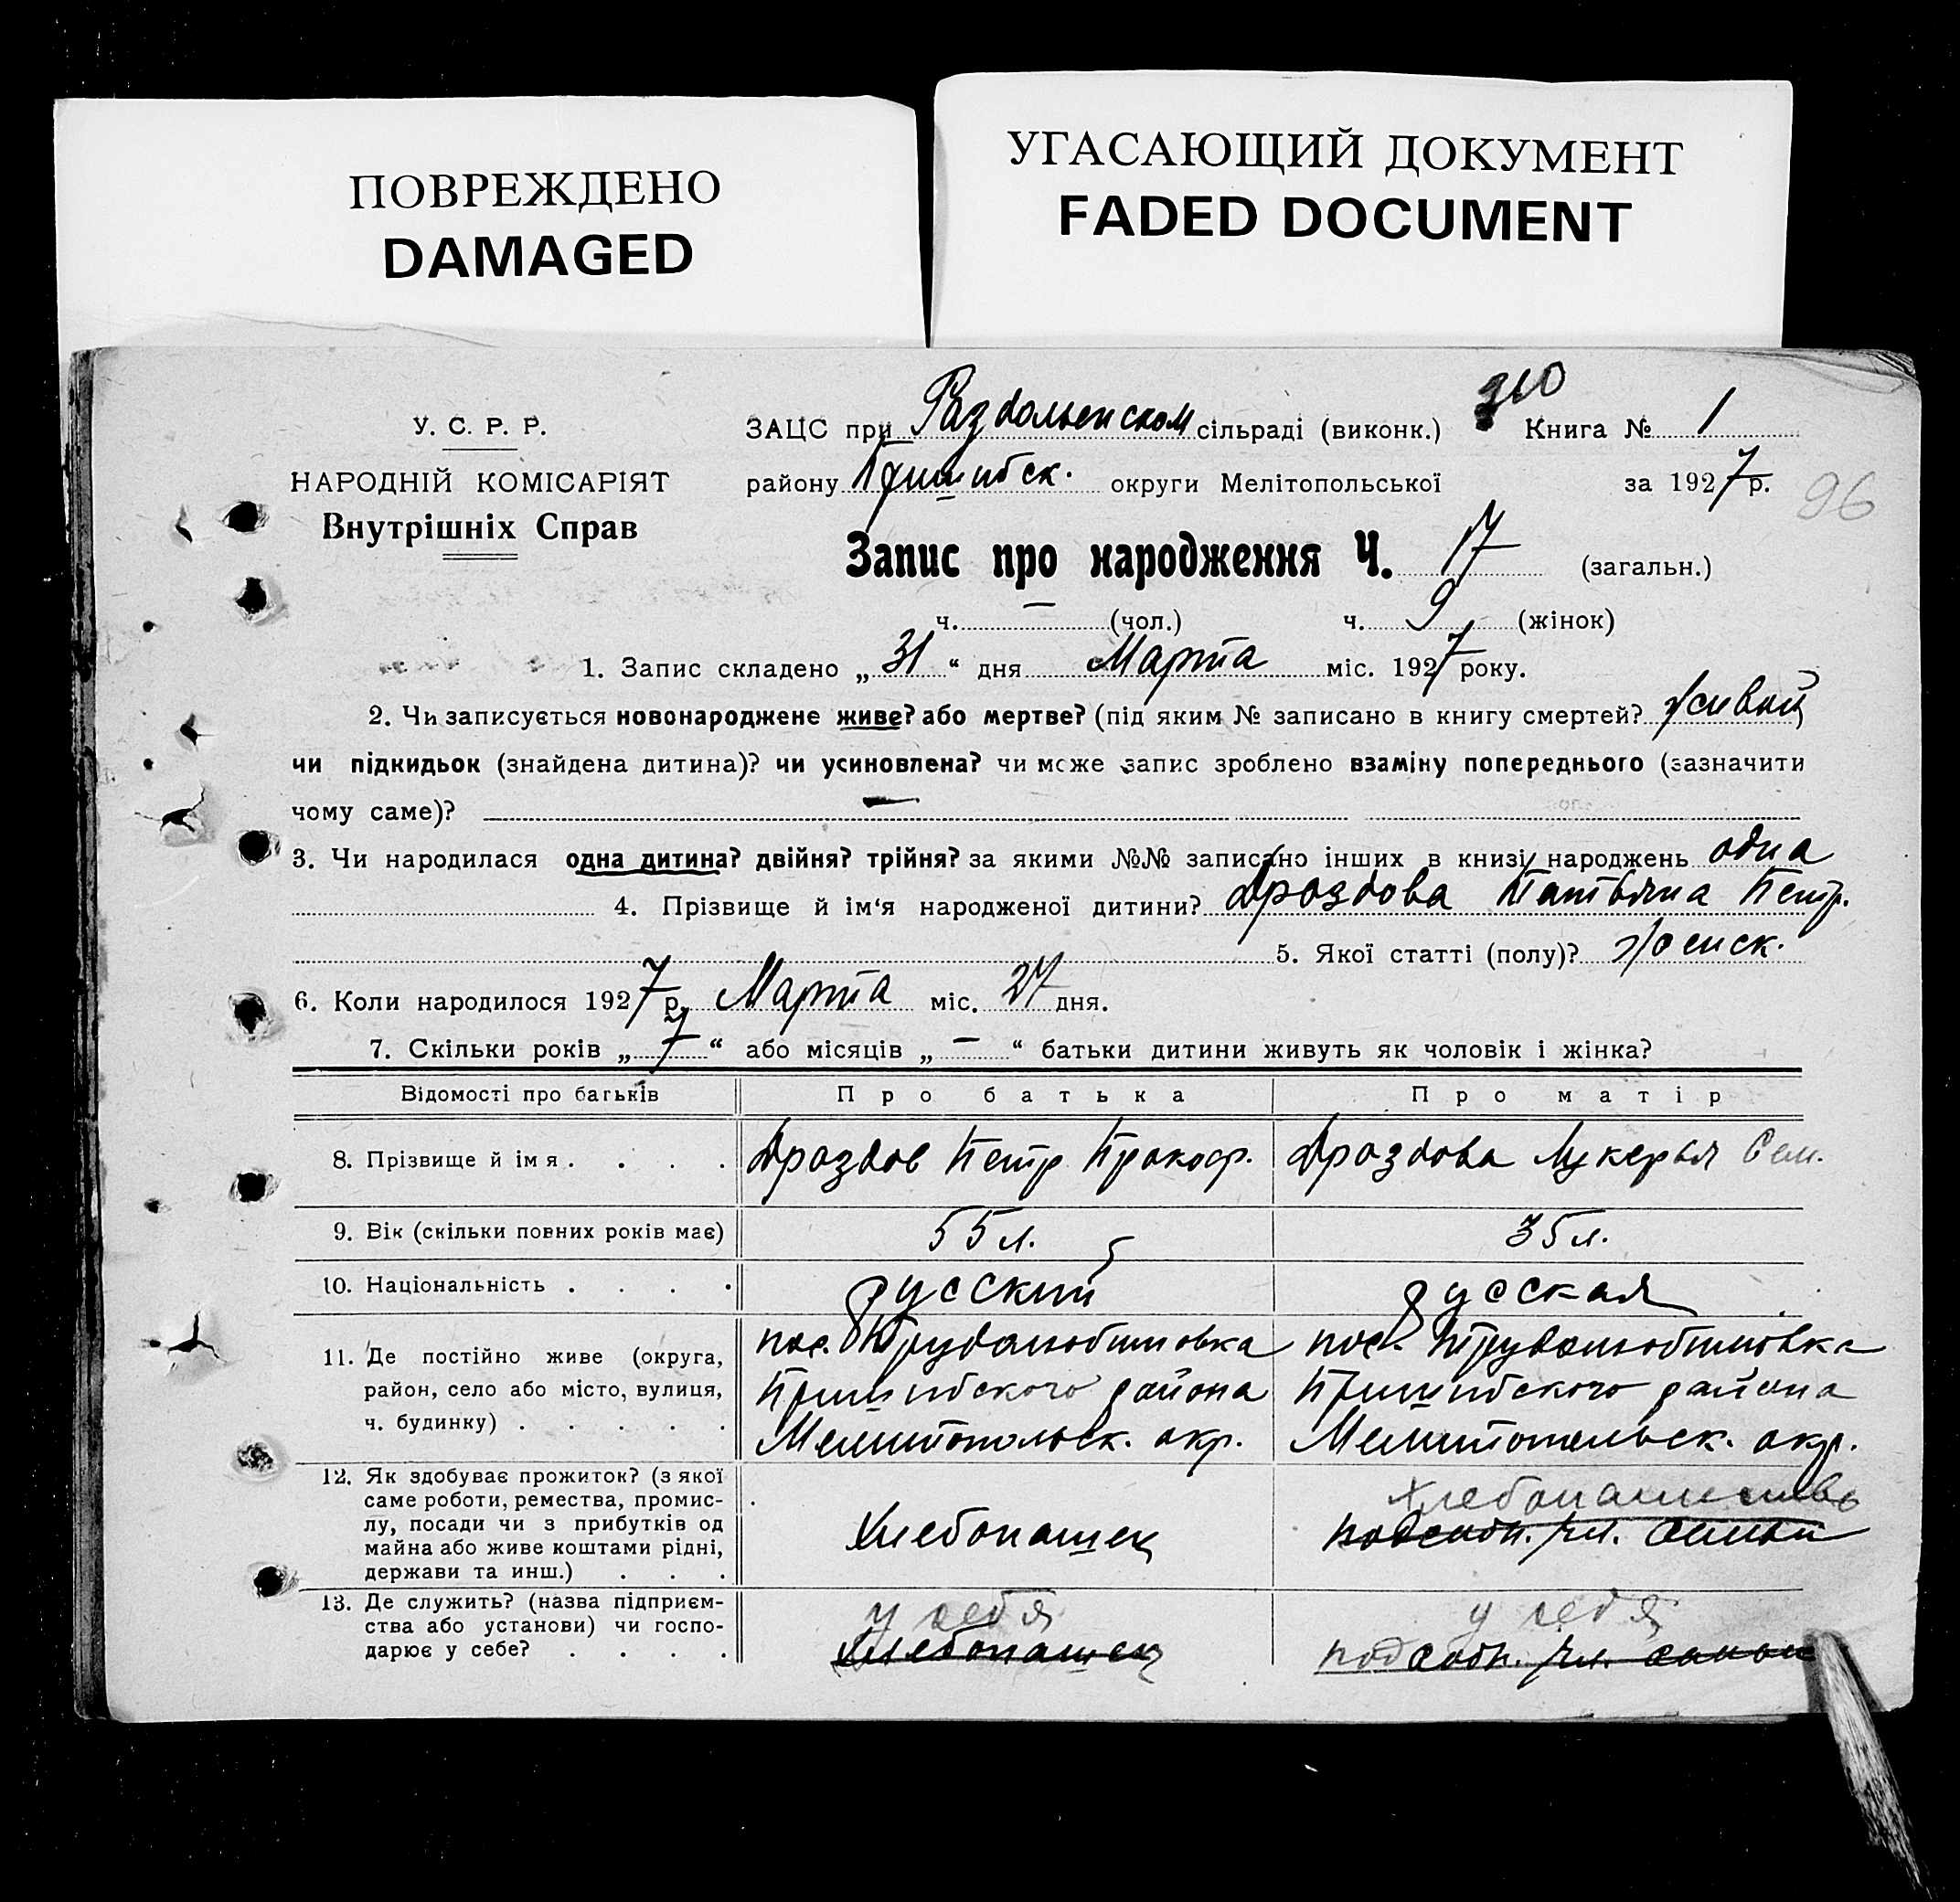 ПОВРЕЖДЕНО
DAMAGED
УГАСАЮЩИЙ ДОКУМЕНТ
FADED DOCUMENT
310
У. С. Р. Р.
НАРОДНІЙ КОМІСАРІЯТ
Внутрішніх Справ
ЗАЦС при Раздольенском сільраді (виконк.) Книга № 1
району Пришибск. округи Мелітопольської за 1927 р.
96
Запис про народження Ч. 17 (загальн.)
ч. — (чол.) ч. 9 (жінок)
1. Запис складено „31“ дня Марта міс. 1927 року.
2. Чи записується новонароджене живе? або мертве? (під яким № записано в книгу смертей? живой
чи підкидьок (знайдена дитина)? чи усиновлена? чи може запис зроблено взаміну попереднього (зазначити
чому саме)? —
3. Чи народилася одна дитина? двійня? трійня? за якими №№ записано інших в книзі народжень одна
4. Прізвище й ім‘я народженої дитини? Дроздова Татьяна Петр.
5. Якої статті (полу)? женск.
6. Коли народилося 1927 р. Марта міс. 27 дня.
7. Скільки років „7“ або місяців „—“ батьки дитини живуть як чоловік і жінка?
Відомості про батьків Про батька Про матір
8. Прізвище й імя . . . . Дроздов Петр Прокоф. Дроздова Лукерья Сем.
9. Вік (скільки повних років має) 55 л. 35 л.
10. Національність . . . . русский русская
11. Де постійно живе (округа, пос. Трудолюбимовка пос. Трудолюбимовка
район, село або місто, вулиця, Пришибского района Пришибского района
ч. будинку) . . . . . Мелитопольск. окр. Мелитопольск. окр.
12. Як здобуває прожиток? (з якої
саме роботи, ремества, промис- хлебопашество
лу, посади чи з прибутків од Хлебопашец подсобн. чл. семьи
майна або живе коштами рідні,
держави та инш.) . . .
13. Де служить? (назва підприєм- у себя у себя
ства або установи) чи госпо- Хлебопашец подсобн. чл. семьи
дарює у себе? . . . .